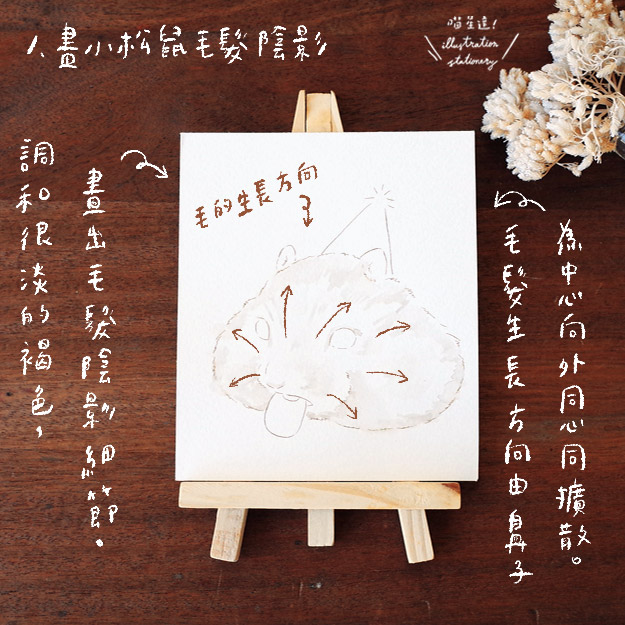 1、畫小松鼠毛髮陰影
喵笙達!
illustration
stationery
調和很淡的褐色,
畫出毛髮陰影細節。
毛的生長方向
毛髮生長方向由鼻子
為中心向外同心同擴散。